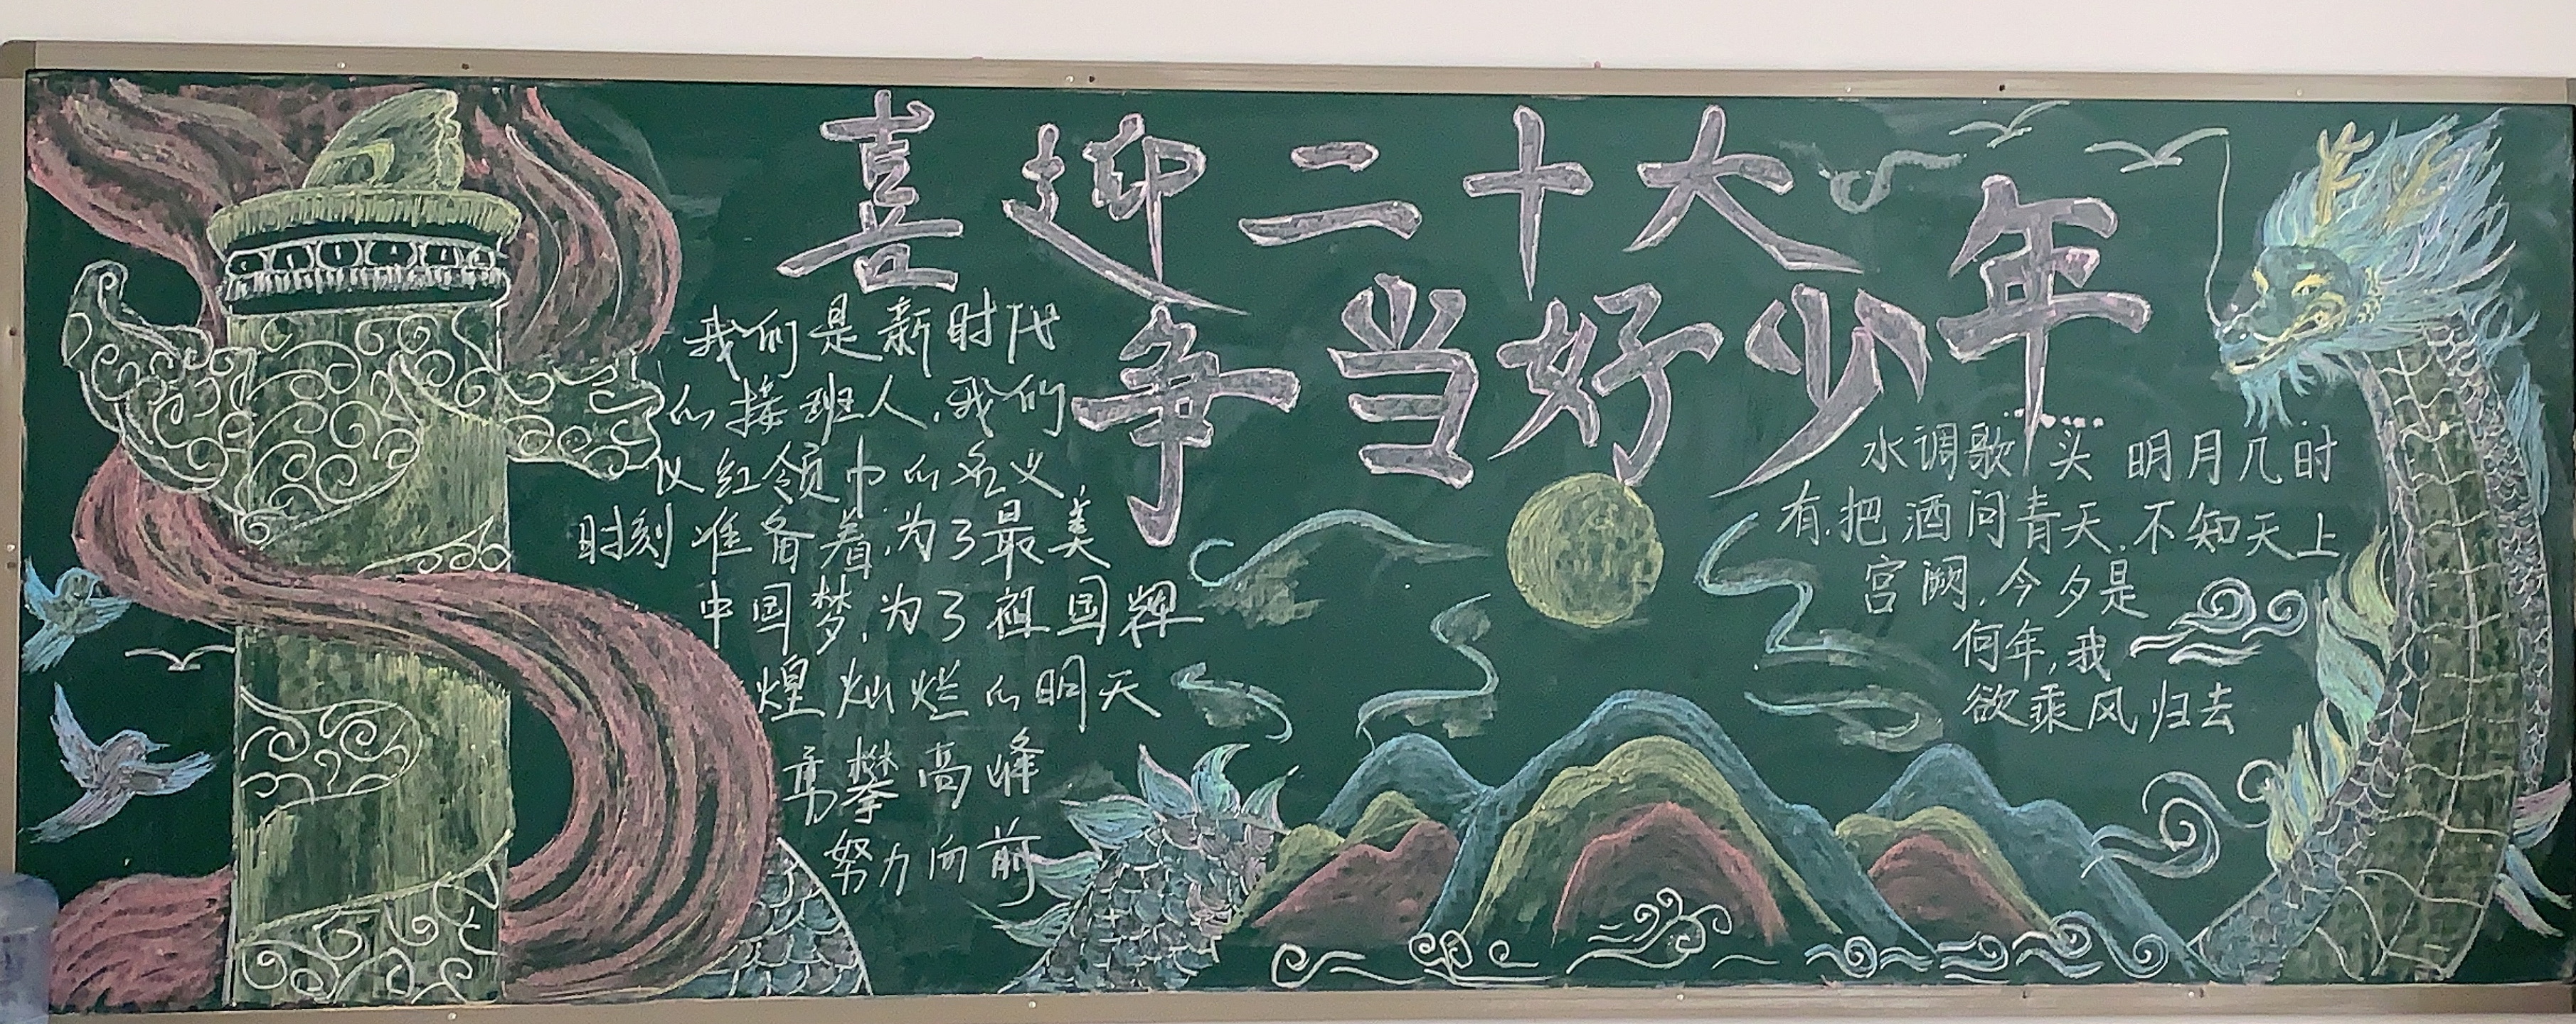 喜迎二十大
争当好少年
我们是新时代
的接班人,我们
以红领巾的名义,
时刻准备着,为了最美
中国梦,为了祖国辉
煌灿烂的明天
勇攀高峰
努力向前
水调歌头 明月几时
有,把酒问青天,不知天上
宫阙,今夕是
何年,我
欲乘风归去